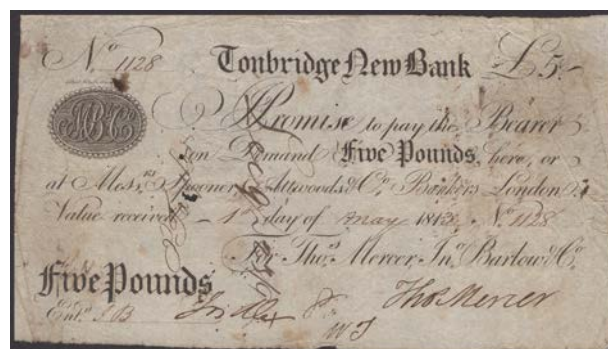 No. 1128 Tonbridge New Bank £5.-
MB&Co
I Promise to pay the Bearer
on Demand Five Pounds, here, or
at Messrs. Spooner, Attwoods & Co. Bankers London
Value received 1st day of May 1813. No. 1128
For Thos. Mercer, Jno. Barlow & Co.
Five Pounds
Entd. J B Thos Mercer